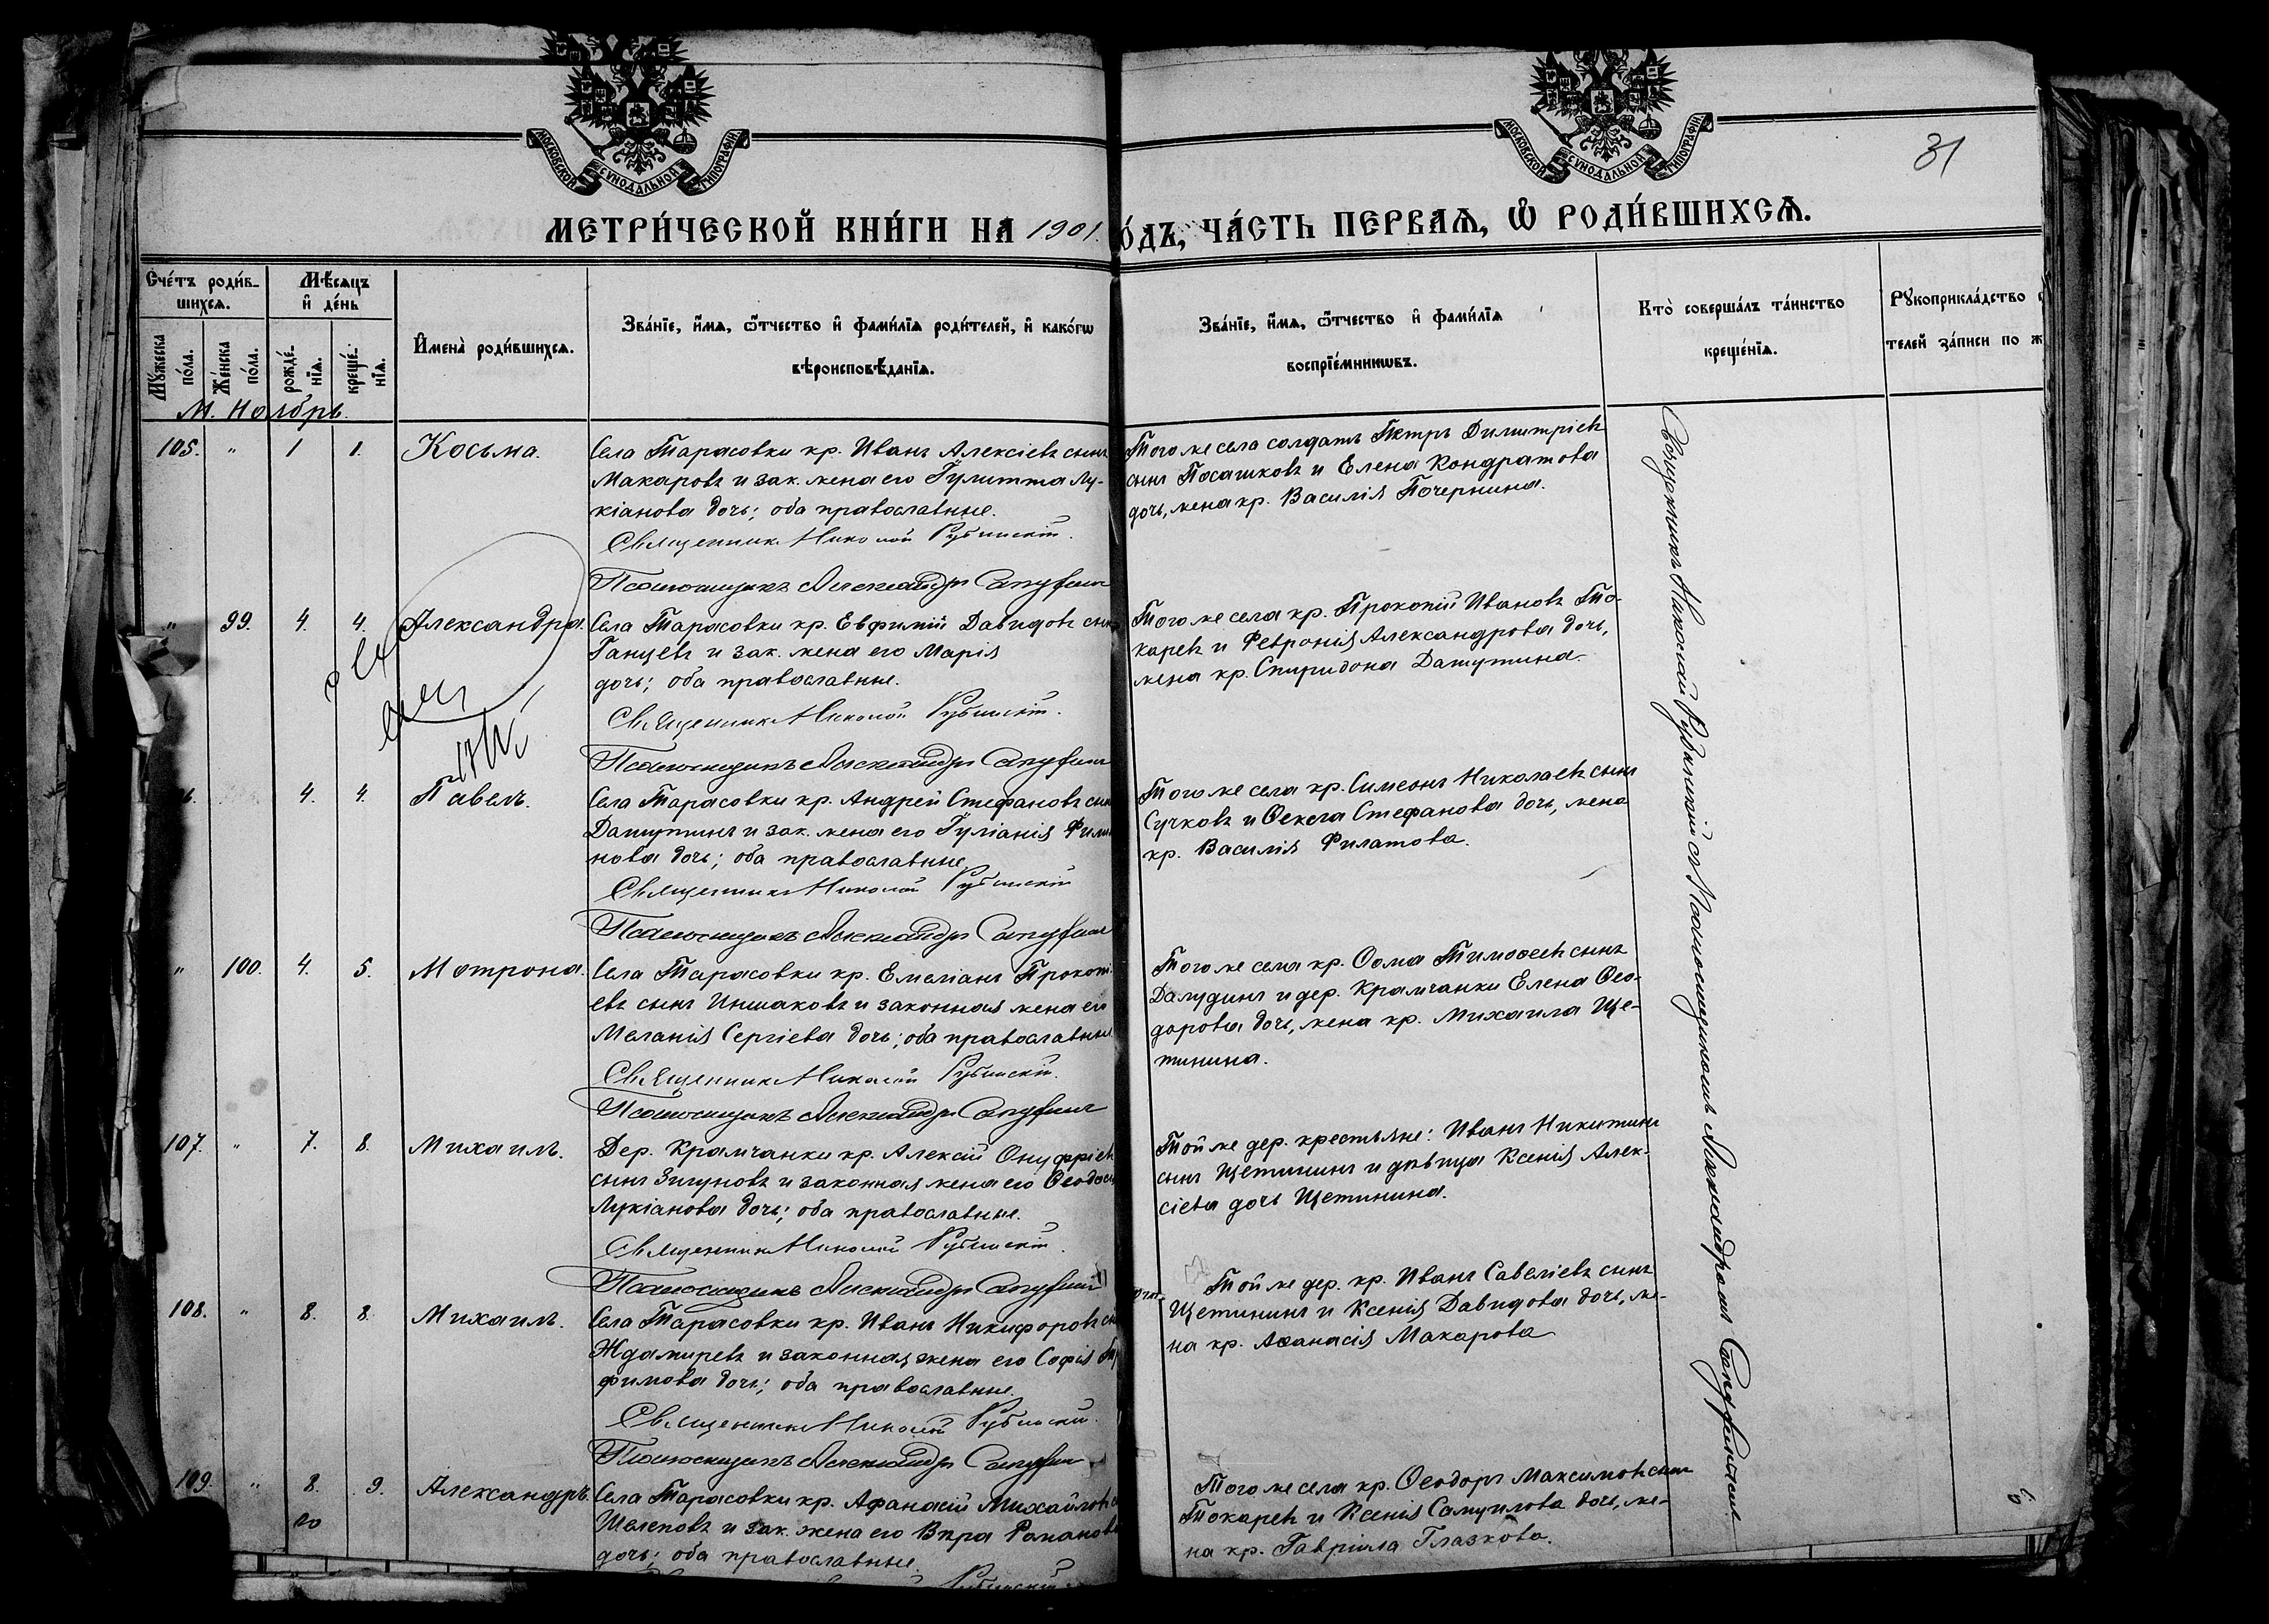 МОСКОВСКОЙ СѴНОДАЛЬНОЙ ТИПОГРАФІИ
МОСКОВСКОЙ СѴНОДАЛЬНОЙ ТИПОГРАФІИ
31
МЕТРИ́ЧЕСКОЙ КНИ́ГИ НА 1901. О́ДЪ, ЧА́СТЬ ПЕРВАѦ, Ѡ РОДИ́ВШИХСѦ.
Сче́тъ роди́в-
шихсѧ.
Мꙋжеска по́ла.
Же́нска по́ла.
Мѣ́сѧцъ
и҆ де́нь
рожде́-
нїѧ.
креще́-
нїѧ.
И҆мена̀ роди́вшихсѧ.
Зва́нїе, и҆́мѧ, ѻ҆́тчество и҆ фами́лїѧ роди́телей, и҆ како́гѡ
вѣроисповѣ́данїѧ.
Зва́нїе, и҆́мѧ, ѻ҆́тчество и҆ фами́лїѧ
воспрїе́мникѡвъ.
Кто̀ соверша́лъ та́инство
креще́нїѧ.
Рꙋкоприкла́дство
телей за́писи по ж
М. Ноябрь.
105. " 1 1. Косьма. Села Тарасовки кр. Иванъ Алексіевъ сынъ
Макаровъ и зак. жена его Іулитта Лу-
кіанова дочь; оба православные.
Священникъ Николай Рубинскій.
Псаломщикъ Александръ
Того же села солдатъ Петръ Димитріевъ
сынъ Посашковъ и Елена Кондратова
дочь, жена кр. Василія Почернина.
" 99. 4. 4. Александра. Села Тарасовки кр. Евфимій Давидовъ сынъ
Ганцевъ и зак. жена его Марія
дочь; оба православные.
Священникъ Николай Рубинскій.
Псаломщикъ Александръ
Того же села кр. Прокопій Ивановъ То-
каревъ и Февронія Александрова дочь,
жена кр. Спиридона Дашутина.
6. 4. 4. Павелъ. Села Тарасовки кр. Андрей Стефановъ сын
Дашутинъ и зак. жена его Іуліанія Фили
нова дочь; оба православные.
Священникъ Николай Рубинскій
Псаломщикъ Александръ
Того же села кр. Симеонъ Николаевъ сынъ
Сучковъ и Ѳекла Стефанова дочь, жена
кр. Василія Филатова.
" 100. 4. 5. Матрона. Села Тарасовки кр. Емеліанъ Прокопі-
евъ сынъ Иншаковъ и законная жена его
Меланія Сергіева дочь; оба православные
Священникъ Николай Рубинскій.
Псаломщикъ Александръ
Того же села кр. Ѳома Тимоѳеевъ сынъ
Далудинъ и дер. Крамчанки Елена Ѳео-
дорова дочь, жена кр. Михаила Ще-
тинина.
107. " 7. 8. Михаилъ. Дер. Крамчанки кр. Алексій Онуфріевъ
сынъ Зигуновъ и законная жена его Ѳеодосія
Лукіанова дочь; оба православные.
Священникъ Николай Рубинскій.
Псаломщикъ Александръ
Той же дер. крестьяне: Иванъ Никитинъ
сынъ Щетининъ и дѣвица Ксенія Алек-
сіева дочь Щетинина.
108. " 8. 8. Михаилъ. Села Тарасовки кр. Иванъ Никифоровъ сы
Ждамиревъ и законная жена его Софія
фимова дочь; оба православные.
Священникъ Николай Рубинскій.
Псаломщикъ Александръ
Той же дер. кр. Иванъ Савеліевъ сынъ
Щетининъ и Ксенія Давидова дочь, же-
на кр. Аѳанасія Макарова
109. " 8. 9. Александръ. Села Тарасовки кр. Афанасій Михайловъ
Шелеповъ и зак. жена его Вѣра Романова
дочь; оба православные.
Того же села кр. Ѳеодоръ Максимовъ сынъ
Токаревъ и Ксенія Самуилова дочь, же-
на кр. Гавріила Глазкова.
Священникъ Николай Рубинскій съ Псаломщикомъ Александромъ